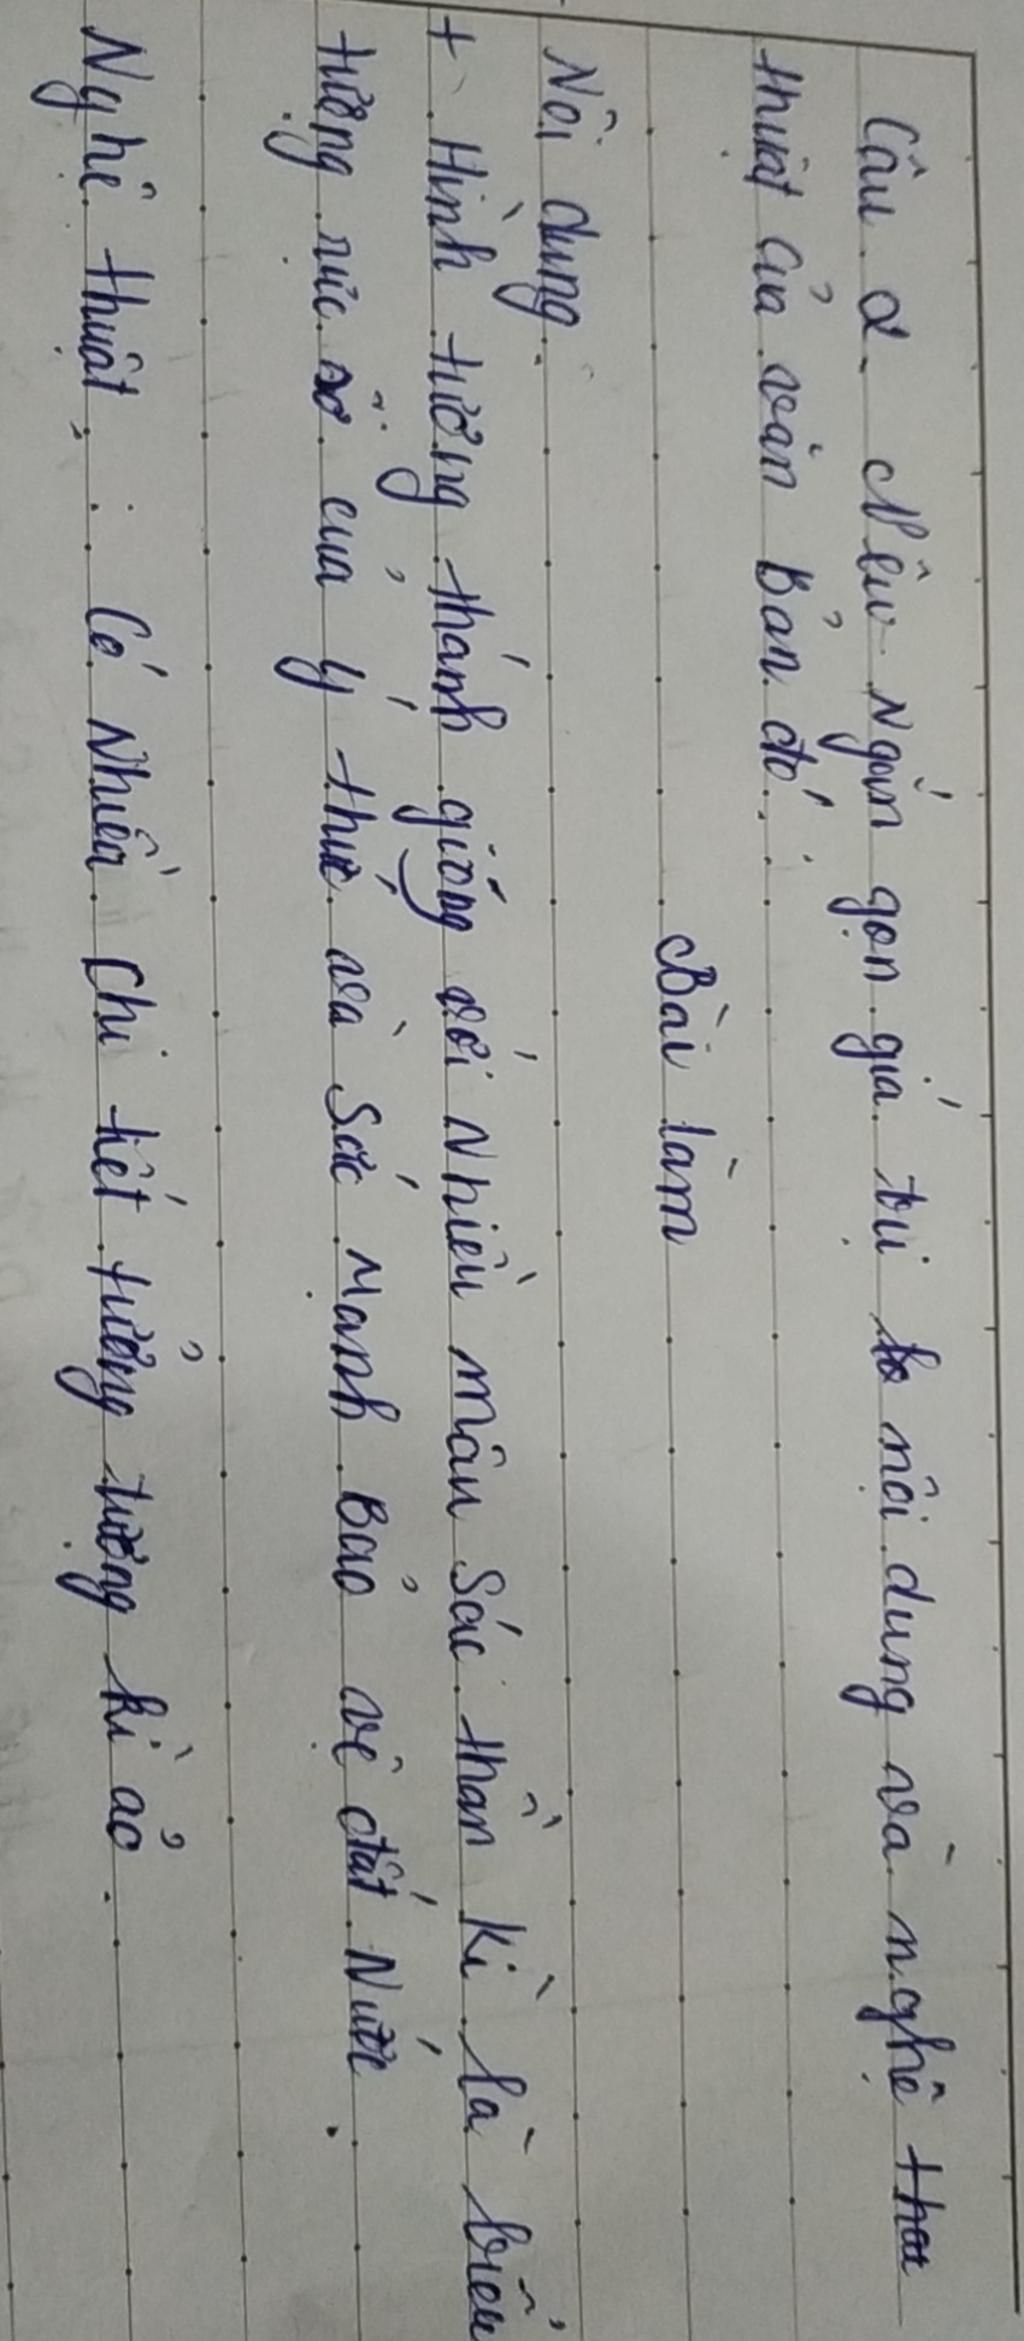 Câu 2. Nêu Ngắn gọn giá trị nội dung và nghệ
thuật của văn Bản đó.
Bài làm
Nội dung.
+ Hình tượng thánh gióng với Nhiều màu Sắc thần Kì là biểu
tượng rực rỡ của ý thức và Sức Mạnh Bảo vệ đất Nước.
Nghệ thuật : Có Nhiều Chi tiết tưởng tượng kì ảo.